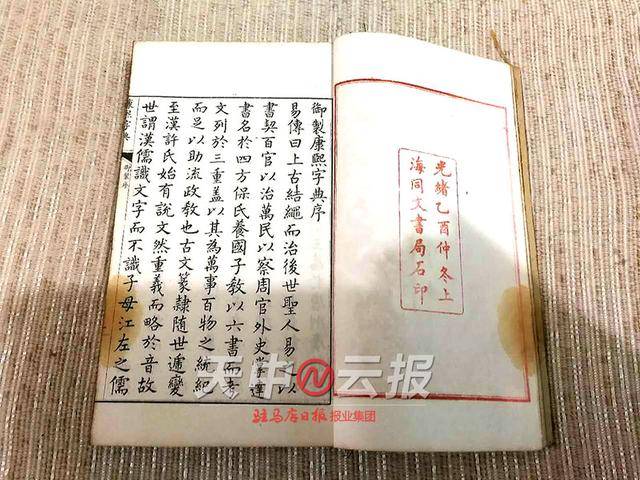 光緒乙酉仲冬上
海同文書局石印
御製康熙字典序
易傳曰上古結繩而治後世聖人易之以
書契百官以治萬民以察周官外史掌達
書名於四方保氏養國子教以六書而考
文列於三重蓋以其為萬事百物之統紀
而足以助流政教也古文篆隸隨世遞變
至漢許氏始有說文然重義而略於音故
世謂漢儒識文字而不識子母江左之儒
康熙字典
天中云报
驻马店日报报业集团